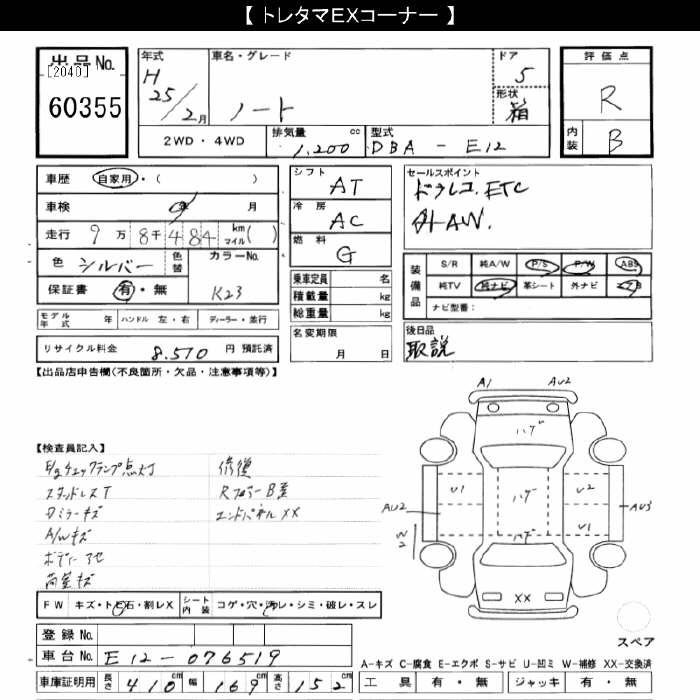 【 トレタマEXコーナー 】
出品No.
[2040]
60355
年式 H 25/2月
車名・グレード ノート
ドア 5
形状 箱
評価点 R
内装 B
2WD・4WD
排気量 1,200 cc
型式 DBA - E12
車歴 自家用・( )
車検 年 月
走行 9万 8千 484 km マイル( )
色 シルバー 色替
カラーNo. K23
保証書 有・無
モデル年式 年 ハンドル 左・右 ディーラー・並行
リサイクル料金 8,510 円 預託済
シフト AT
冷房 AC
燃料 G
乗車定員 名
積載量 kg
総重量 kg
名変期限
月 日
セールスポイント
ドラレコ. ETC
社外AW.
装備品
S/R 純A/W P/S P/W ABS
純TV 純ナビ 革シート 外ナビ エアB
ナビ型番:
後日品
取説
【出品店申告欄(不良箇所・欠品・注意事項等)】
【検査員記入】
チェックランプ点灯
スタッドレスT
ミラーキズ
A/Wキズ
ボディーアセ
荷室キズ
修復
Rフロアー B歪
エンドパネルXX
A1 AU2
ハゲ
U1 ハゲ U2
AU2 AU3
U1
W2
ハゲ
XX
スペア
FW キズ・トビ石・割レX シート内装 コゲ・穴・汚レ・シミ・破レ・スレ
登録No.
車台No. E12-076519
車庫証明用 長さ 410 幅 169 高さ 152 cm
A-キズ C-腐食 E-エクボ S-サビ U-凹ミ W-補修 XX-交換済
工具 有・無 ジャッキ 有・無